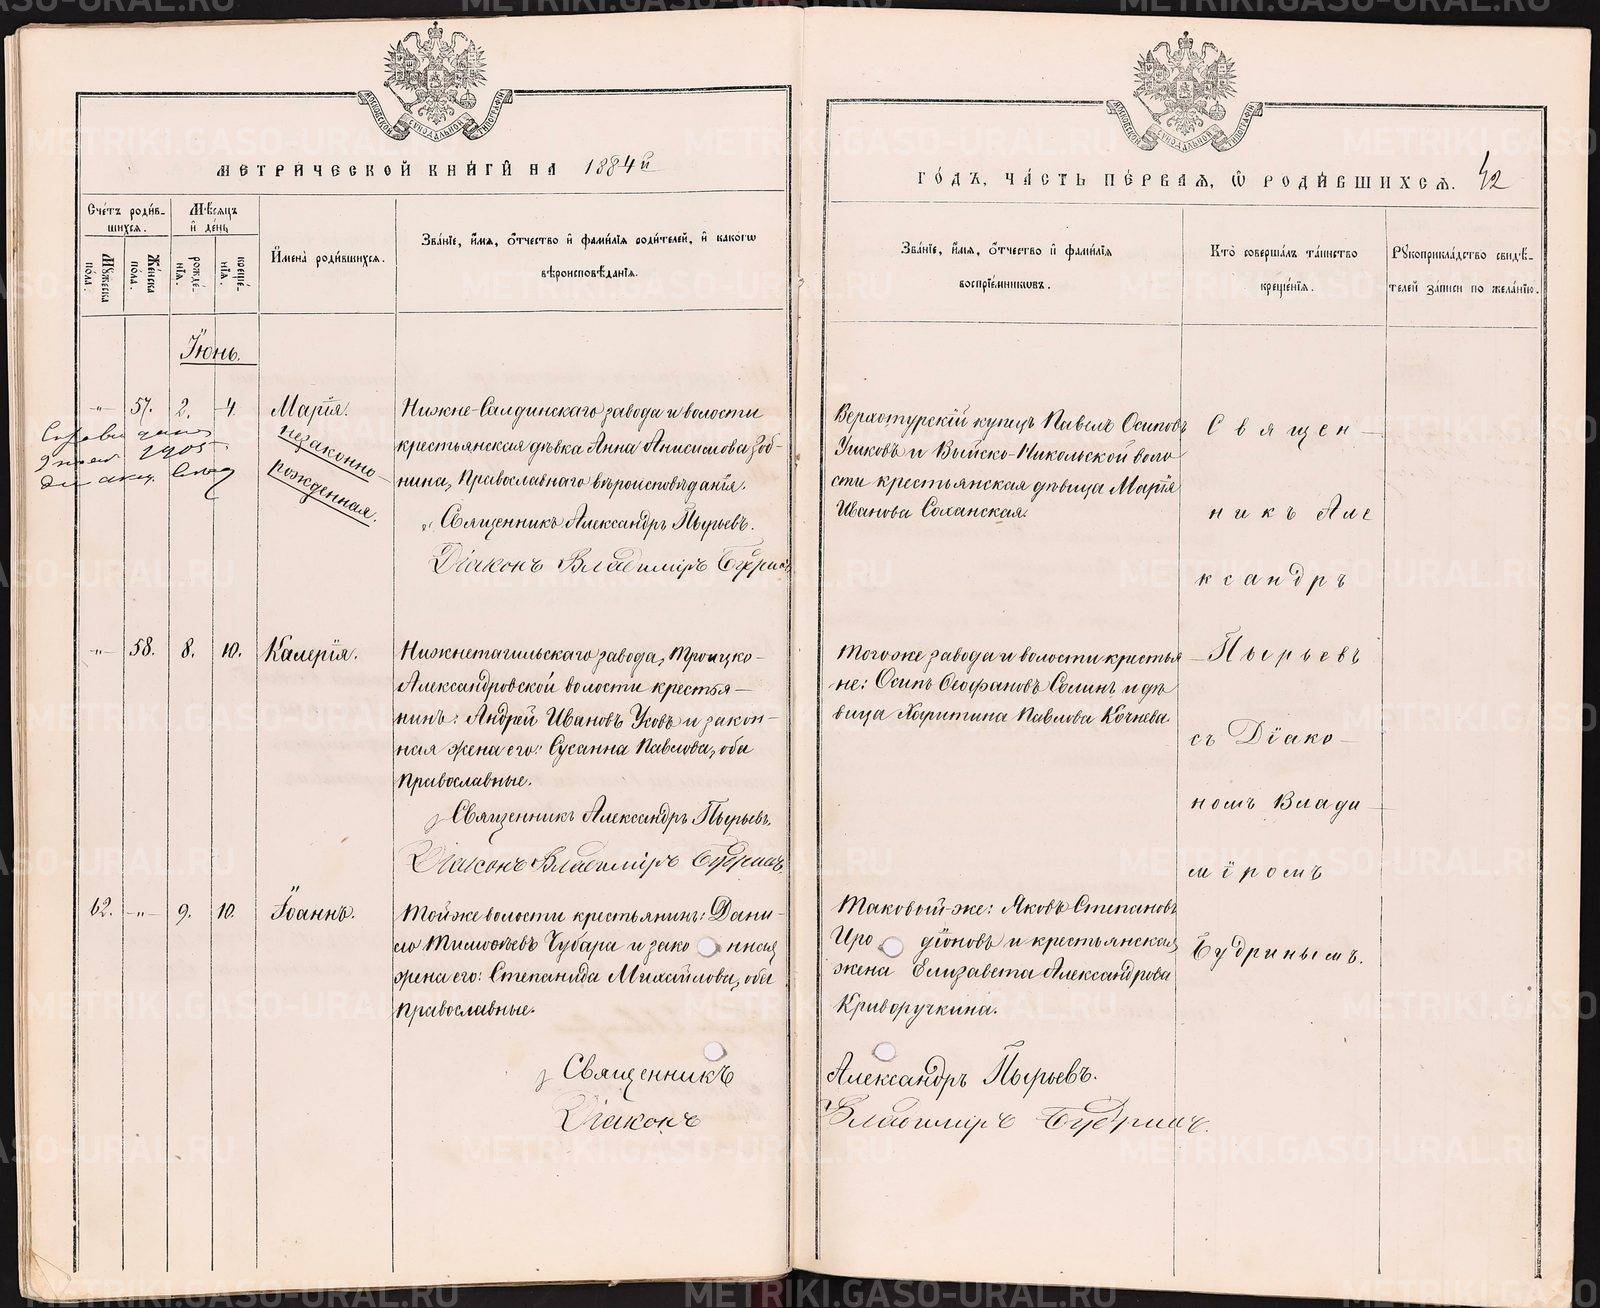 МОСКОВСКОЙ СѴНОДАЛЬНОЙ ТИПОГРАФІИ
МЕТРИЧЕСКОЙ КНИГИ НА 1884й
Счетъ родив-
шихся.
Мѣсяцъ
и день
Мужеска
пола.
Женска
пола.
рожде-
нія.
креще-
нія.
Имена родившихся.
Званіе, имя, отчество и фамилія родителей, и какогѡ
вѣроисповѣданія.
Іюнь.
-"- 57. 2. 4. Марія.
незаконно-
рожденная.
Нижне-Салдинскаго завода и волости
крестьянская дѣвка Анна Анисимова Зоб-
нина, Православнаго вѣроисповѣданія.
Священникъ Александръ Пырьевъ.
Діаконъ Владиміръ Будринъ
-"- 58. 8. 10. Калерія.
Нижнетагильскаго завода, Троицко-
Александровской волости крестья-
нинъ: Андрей Ивановъ Усовъ и закон-
ная жена его: Сусанна Павлова, оба
Православные.
Священникъ Александръ Пырьевъ.
Діаконъ Владиміръ Будринъ
62. -"- 9. 10. Іоаннъ.
Той же волости крестьянинъ: Дани-
ло Тимоѳеевъ Чубара и зако нная
жена его: Степанида Михайлова, оба
Православные.
Священникъ
Діаконъ
МОСКОВСКОЙ СѴНОДАЛЬНОЙ ТИПОГРАФІИ
ГОДЪ, ЧАСТЬ ПЕРВАЯ, Ѿ РОДИВШИХСЯ. 42
Званіе, имя, отчество и фамилія
воспріемниковъ.
Кто совершалъ таинство
крещенія.
Рукоприкладство свидѣ-
телей записи по желанію.
Верхотурскій купецъ Павелъ Осиповъ
Ушковъ и Выйско-Никольской воло
сти крестьянская дѣвица Марія
Иванова Соханская.
Того же завода и волости крестья
не: Осипъ Ѳеофановъ Солинъ и дѣ
вица Харитина Павлова Кочнева.
Таковой-же: Яковъ Степановъ
Иро діоновъ и крестьянская
жена Елизавета Александрова
Криворучкина.
Александръ Пырьевъ.
Владиміръ Будринъ.
Священ-
никъ Але
ксандръ
Пырьевъ
съ Діако-
номъ Влади-
міромъ
Будринымъ.
METRIKI.GASO-URAL.RU